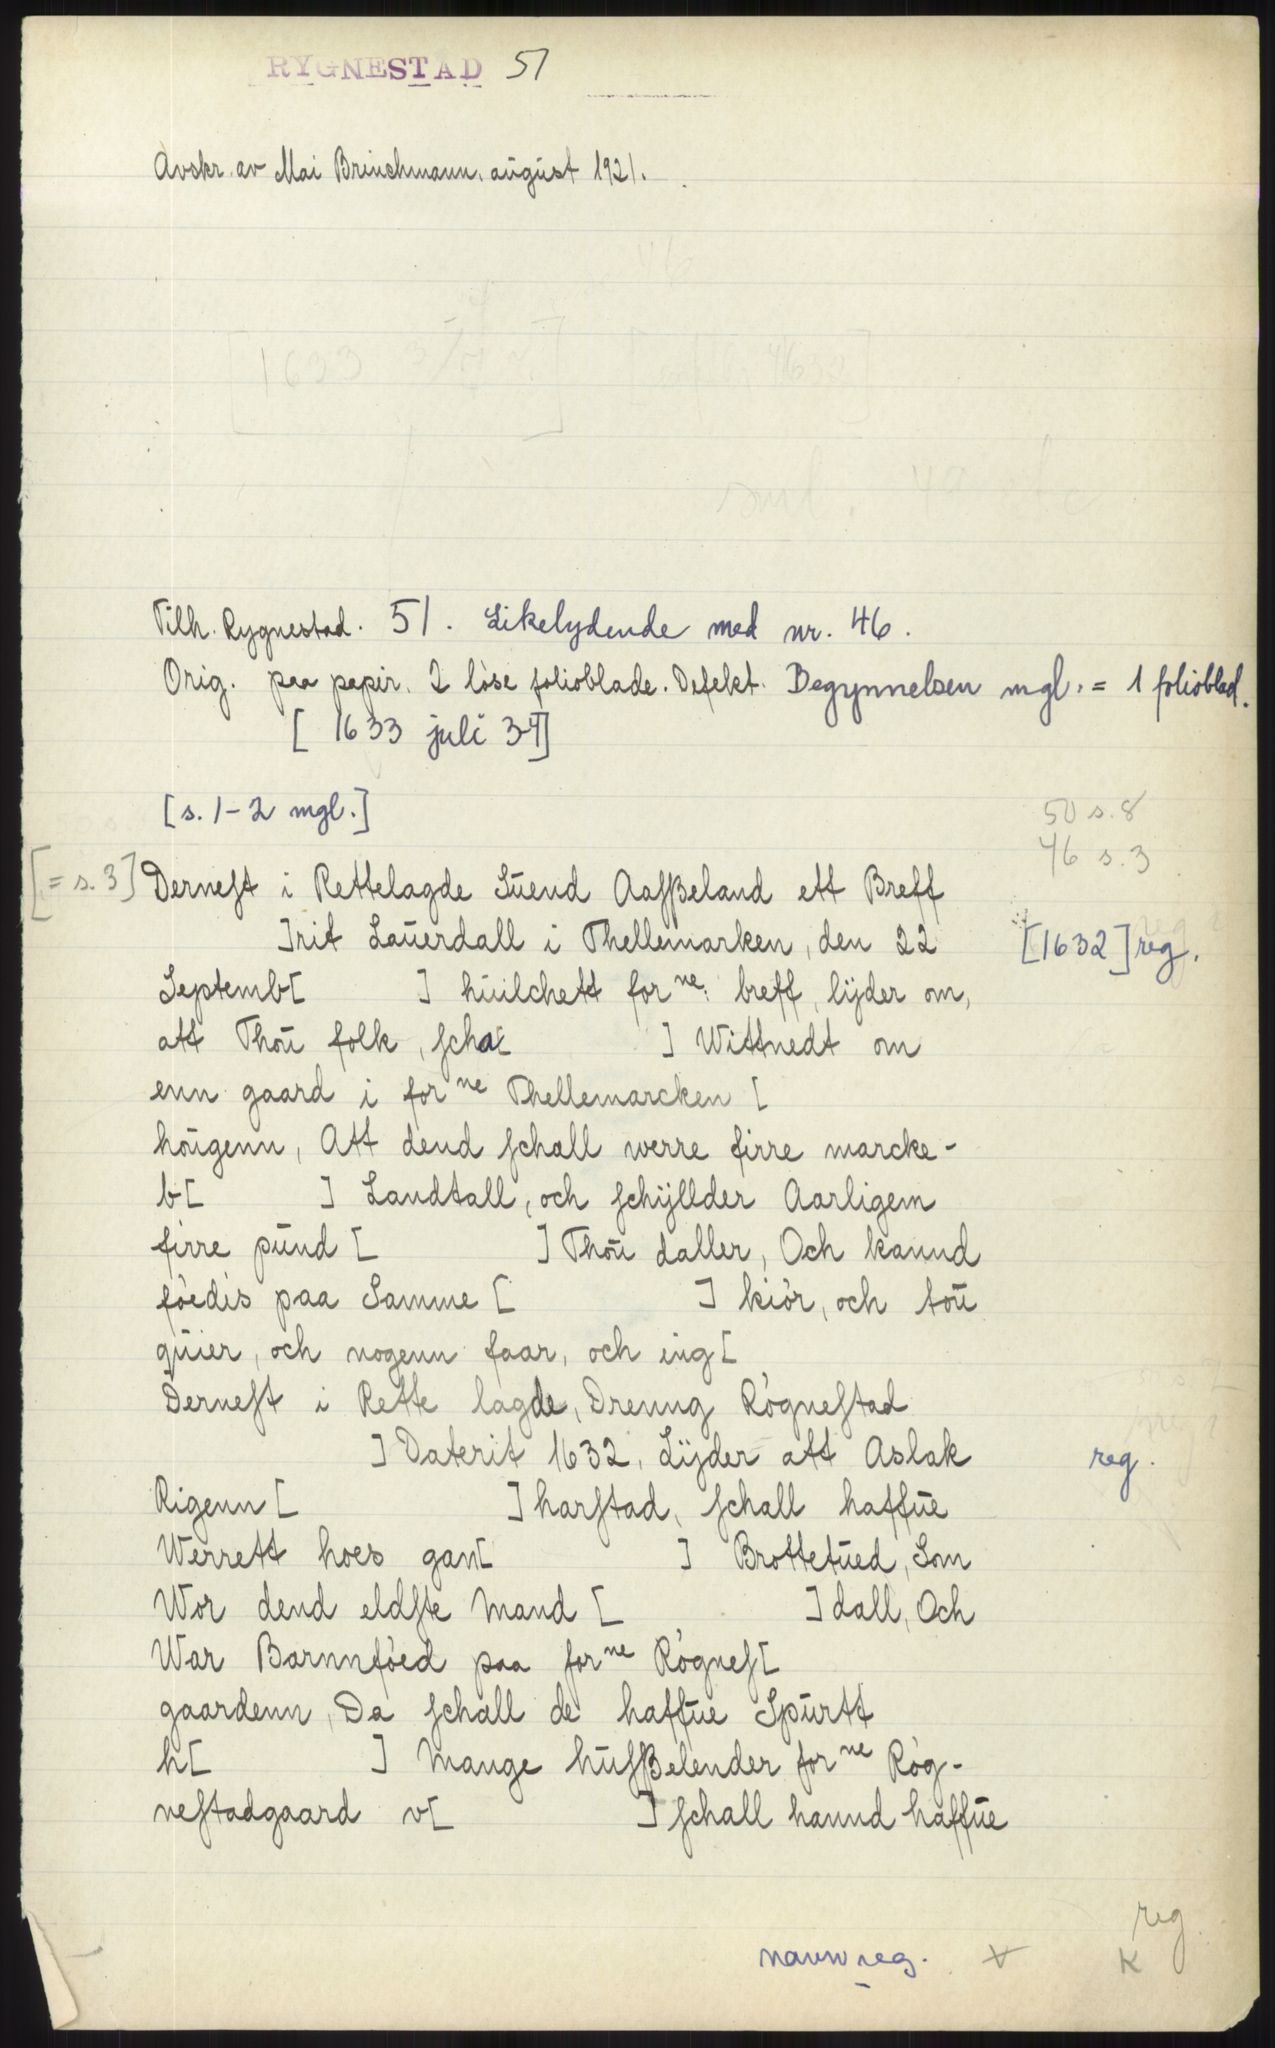 RYGNESTAD 51
Avskr. av Mai Brinchmann, august 1921.
Tilh. Rygnestad. 51. Likelydende med nr. 46.
Orig. paa papir. 2 løse folioblade. Defekt. Begynnelsen mgl. = 1 folioblad.
[1633 juli 3-4]
[s. 1-2 mgl.]
50 s. 8
46 s. 3
[= s. 3] Derneſt i Rettelagde Suend Aaſßeland ett Breff
]rit Lauerdall i Thellemarken, den 22 [1632] reg.
Septemb[ ] huilchett forne: breff, lyder om,
att Thou folk, ſcha[ ] Wittnedt om
enn gaard i forne Thellemarcken [
hougenn, Att dend ſchall werre firre marcke-
b[ ] Landtall, och ſchÿllder Aarligem
firre pund [ ] Thou daller, Och kannd
føedis paa Samme [ ] kiør, och tou
quier, och nogenn faar, och eing[
Derneſt i Rette lagde, Dreung Rògneſtad
] Daterit 1632, Lÿder att Aslak reg.
Rigenn [ ] harſtad, ſchall haffue
Werrett hoes gam[ ] Brottetued, Som
Wor dend eldſte Mand [ ] dall, Och
War Barnnføed paa forne Rògneſ[
gaardenn, Da ſchall de haffue Spurtt
h[ ] Mange huſßelender forne Ròg-
neſtadgaard v[ ] ſchall hannd haffue
reg
navnreg. K